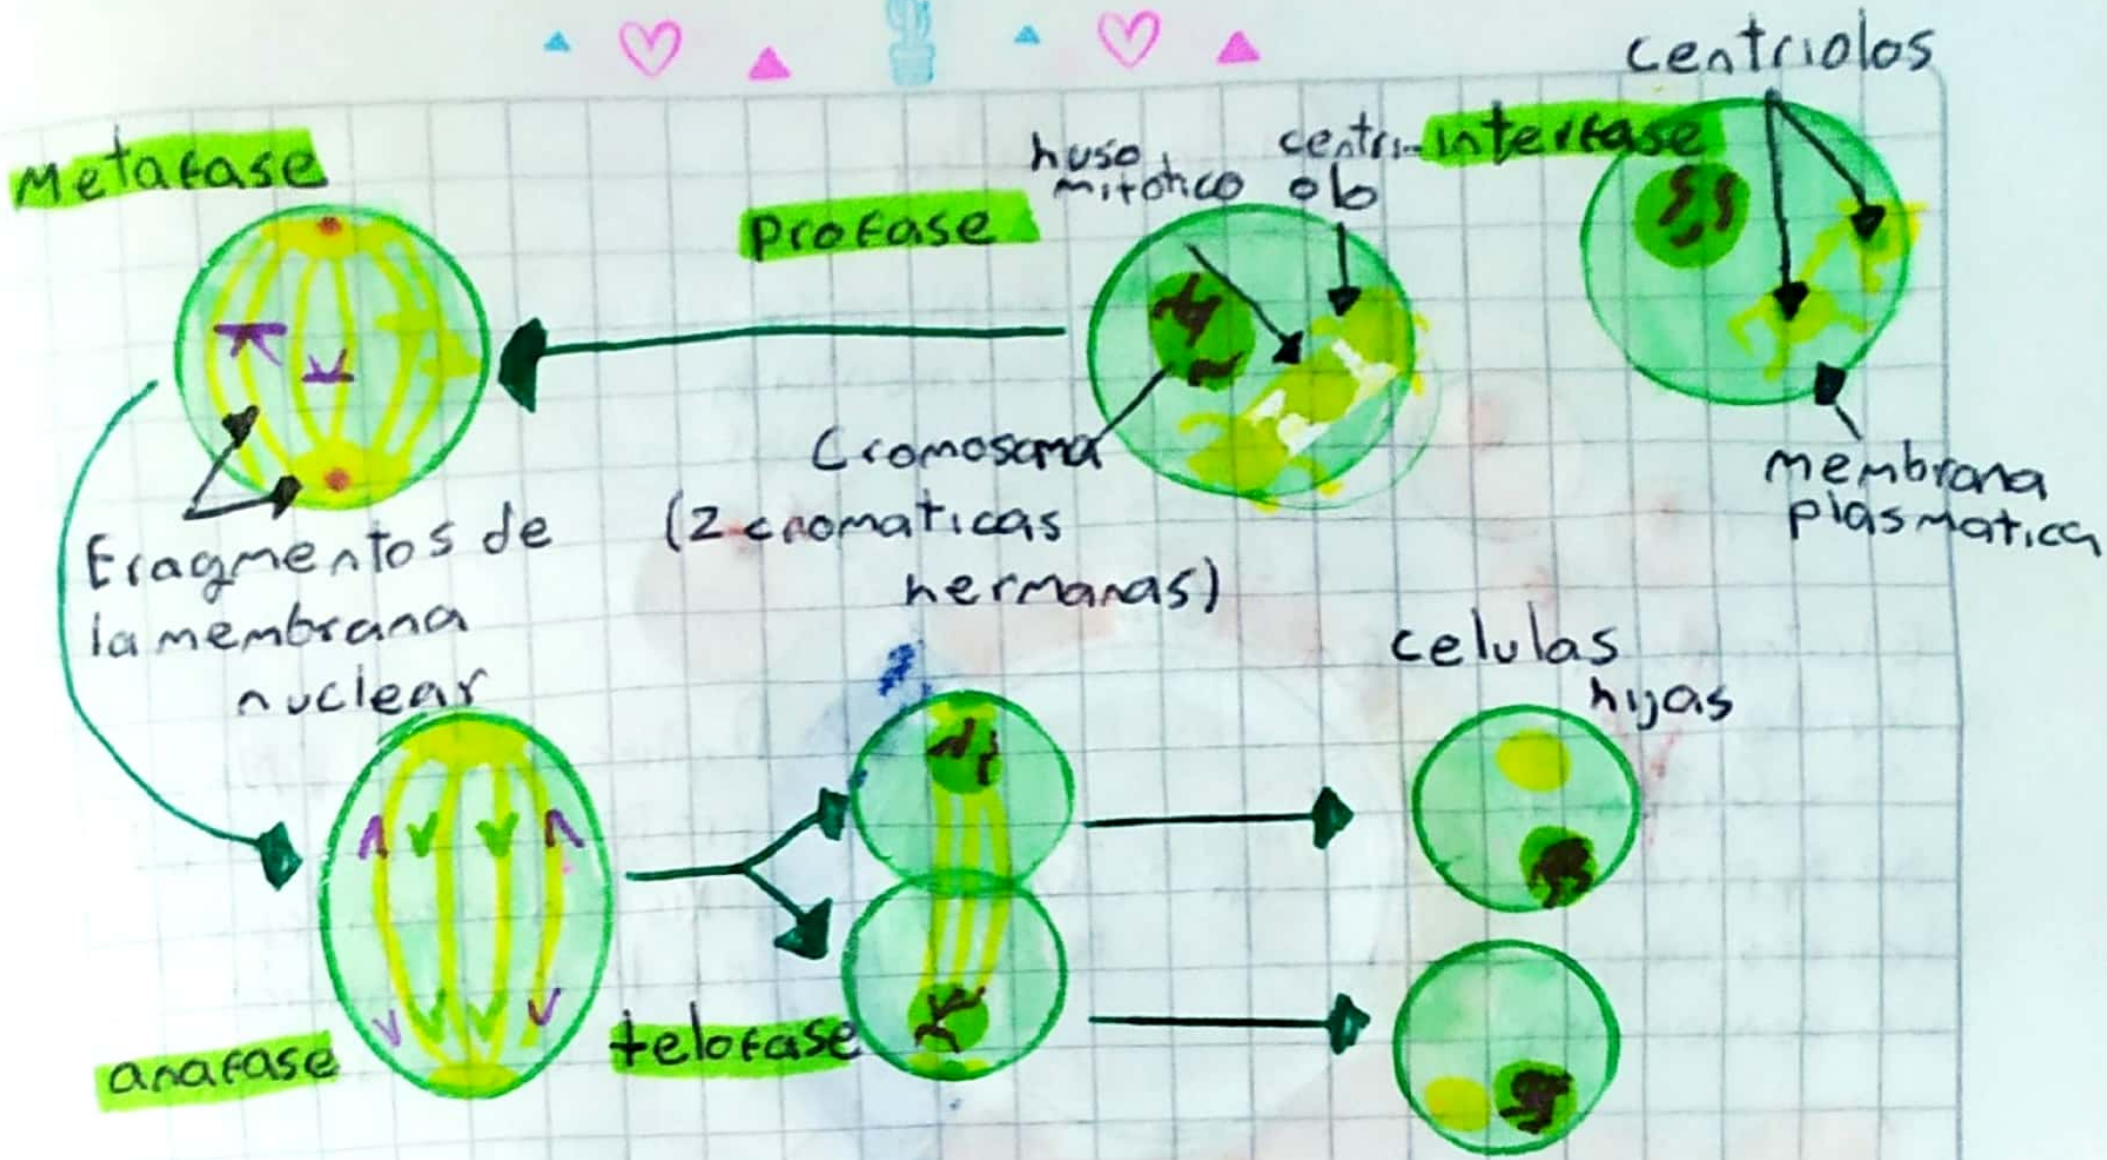 centriolos
Metafase
huso
mitótico
centri-
olo
interfase
profase
Cromosoma
(2 cromaticas
hermanas)
membrana
plasmatica
Fragmentos de
la membrana
nuclear
celulas
hijas
anafase
telofase